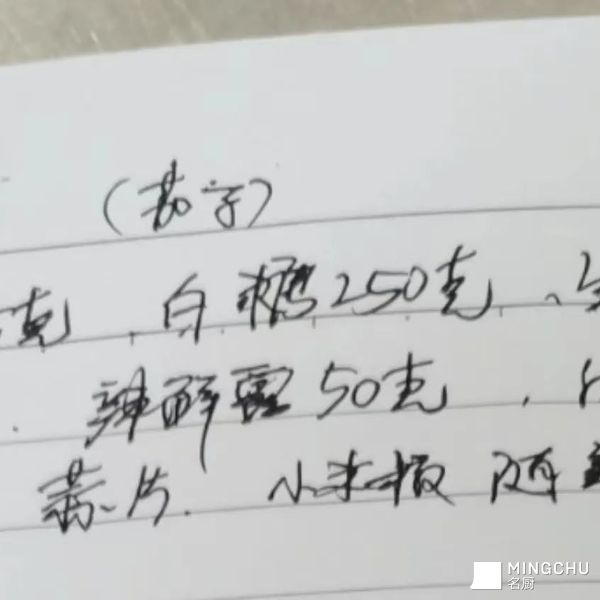 (茄子)
克、白糖250克、
辣鲜露50克,
蒜片. 小米椒 随
MINGCHU
名厨